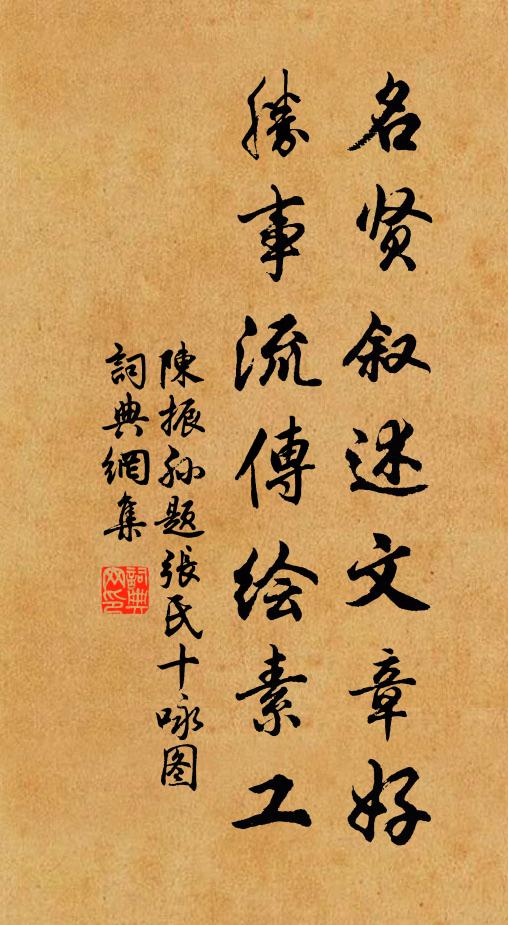 名贤叙述文章好
勝事流傳绘素工
陳振孙题張氏十咏图
詞典網集
詞典网印